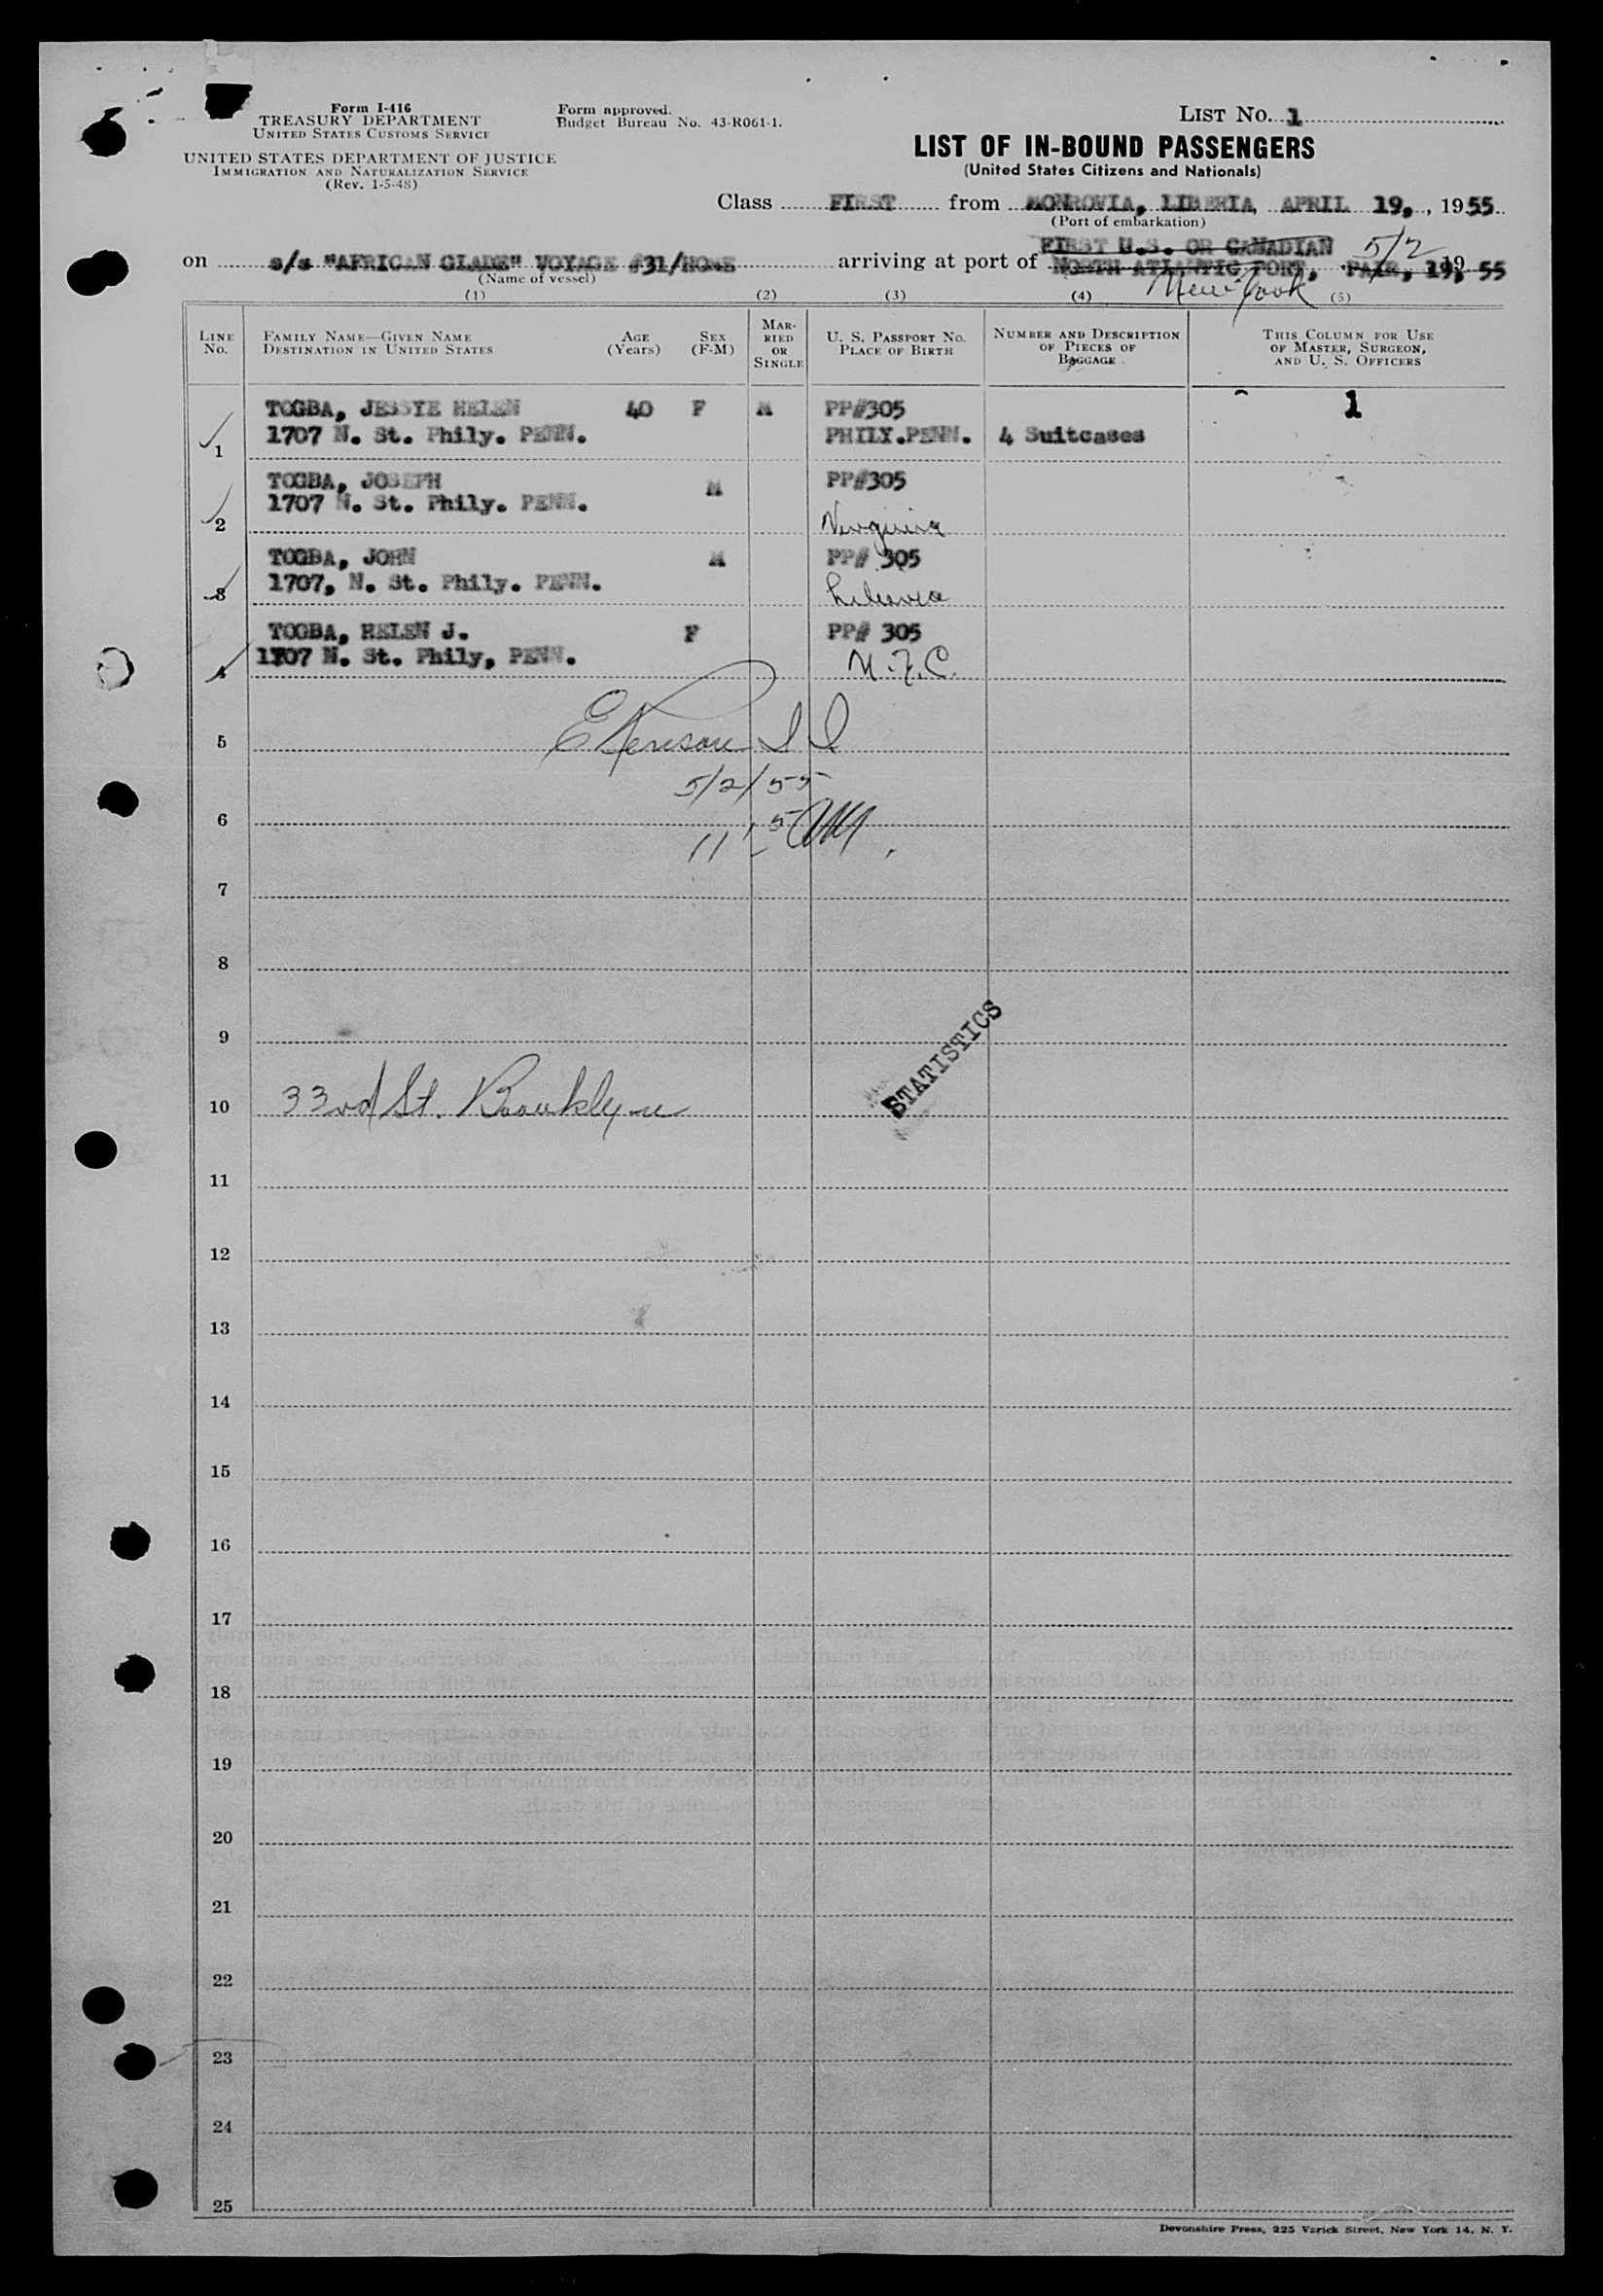 Form I-416
TREASURY DEPARTMENT
UNITED STATES CUSTOMS SERVICE
UNITED STATES DEPARTMENT OF JUSTICE
IMMIGRATION AND NATURALIZATION SERVICE
(Rev. 1-5-48)
Form approved.
Budget Bureau No. 43-R061-1.
LIST NO. 1
LIST OF IN-BOUND PASSENGERS
(United States Citizens and Nationals)
Class FIRST from MONROVIA, LIBERIA, APRIL 19, , 1955
(Port of embarkation)
FIRST U.S. OR CANADIAN 5/2
on s/s "AFRICAN GLADE" VOYAGE #31/HOME arriving at port of NORTH ATLANTIC PORT, 19, 55
(Name of vessel) New York
(1) (2) (3) (4) (5)
LINE NO.
FAMILY NAME—GIVEN NAME
DESTINATION IN UNITED STATES
AGE (Years)
SEX (F-M)
MARRIED OR SINGLE
U. S. PASSPORT NO.
PLACE OF BIRTH
NUMBER AND DESCRIPTION OF PIECES OF BAGGAGE
THIS COLUMN FOR USE OF MASTER, SURGEON, AND U. S. OFFICERS
TOGBA, JESSYE HELEN 40 F M PP#305 1
1 1707 N. St. Phily. PENN. PHILY.PENN. 4 Suitcases
TOGBA, JOSEPH M PP#305
1707 N. St. Phily. PENN.
2 Virginia
TOGBA, JOHN M PP# 305
3 1707, N. St. Phily. PENN. Liberia
TOGBA, HELEN J. F PP# 305
4 1707 N. St. Phily, PENN. N.Y.C.
5
5/2/55
6
7
8
9
STATISTICS
10 33rd St. Brooklyn
11
12
13
14
15
16
17
18
19
20
21
22
23
24
25
Devonshire Press, 225 Varick Street, New York 14, N. Y.